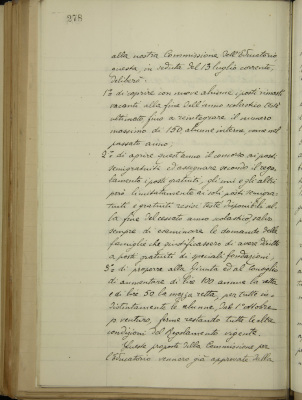 278
alla nostra Commissione dell'Educatorio
questa, in seduta del 13 luglio corrente,
deliberò:
1º di coprire con nuove alunne i posti rimasti
vacanti alla fine dell'anno scolastico testè
ultimato fino a reintegrare il numero
massimo di 150 alunne interne, come nel
passato anno;
2º di aprire quest'anno il concorso ai posti
semigratuiti, ed assegnare secondo il rego-
lamento i posti gratuiti, gli uni e gli altri
però limitatamente ai soli posti semigra-
tuiti e gratuiti resisi testè disponibili al-
la fine del cessato anno scolastico, salvo
sempre di esaminare le domande delle
famiglie che giustificassero di avere diritto
a posti gratuiti di speciali fondazioni;
3º di proporre alla Giunta ed al Consiglio
di aumentare di lire 100 annue la retta
e di lire 50 la mezza retta, per tutte in-
distintamente le alunne dal 1º ottobre
p. venturo, ferme restando tutte le altre
condizioni del Regolamento vigente.
Queste proposte della Commissione per
l'Educatorio vennero già approvate dalla